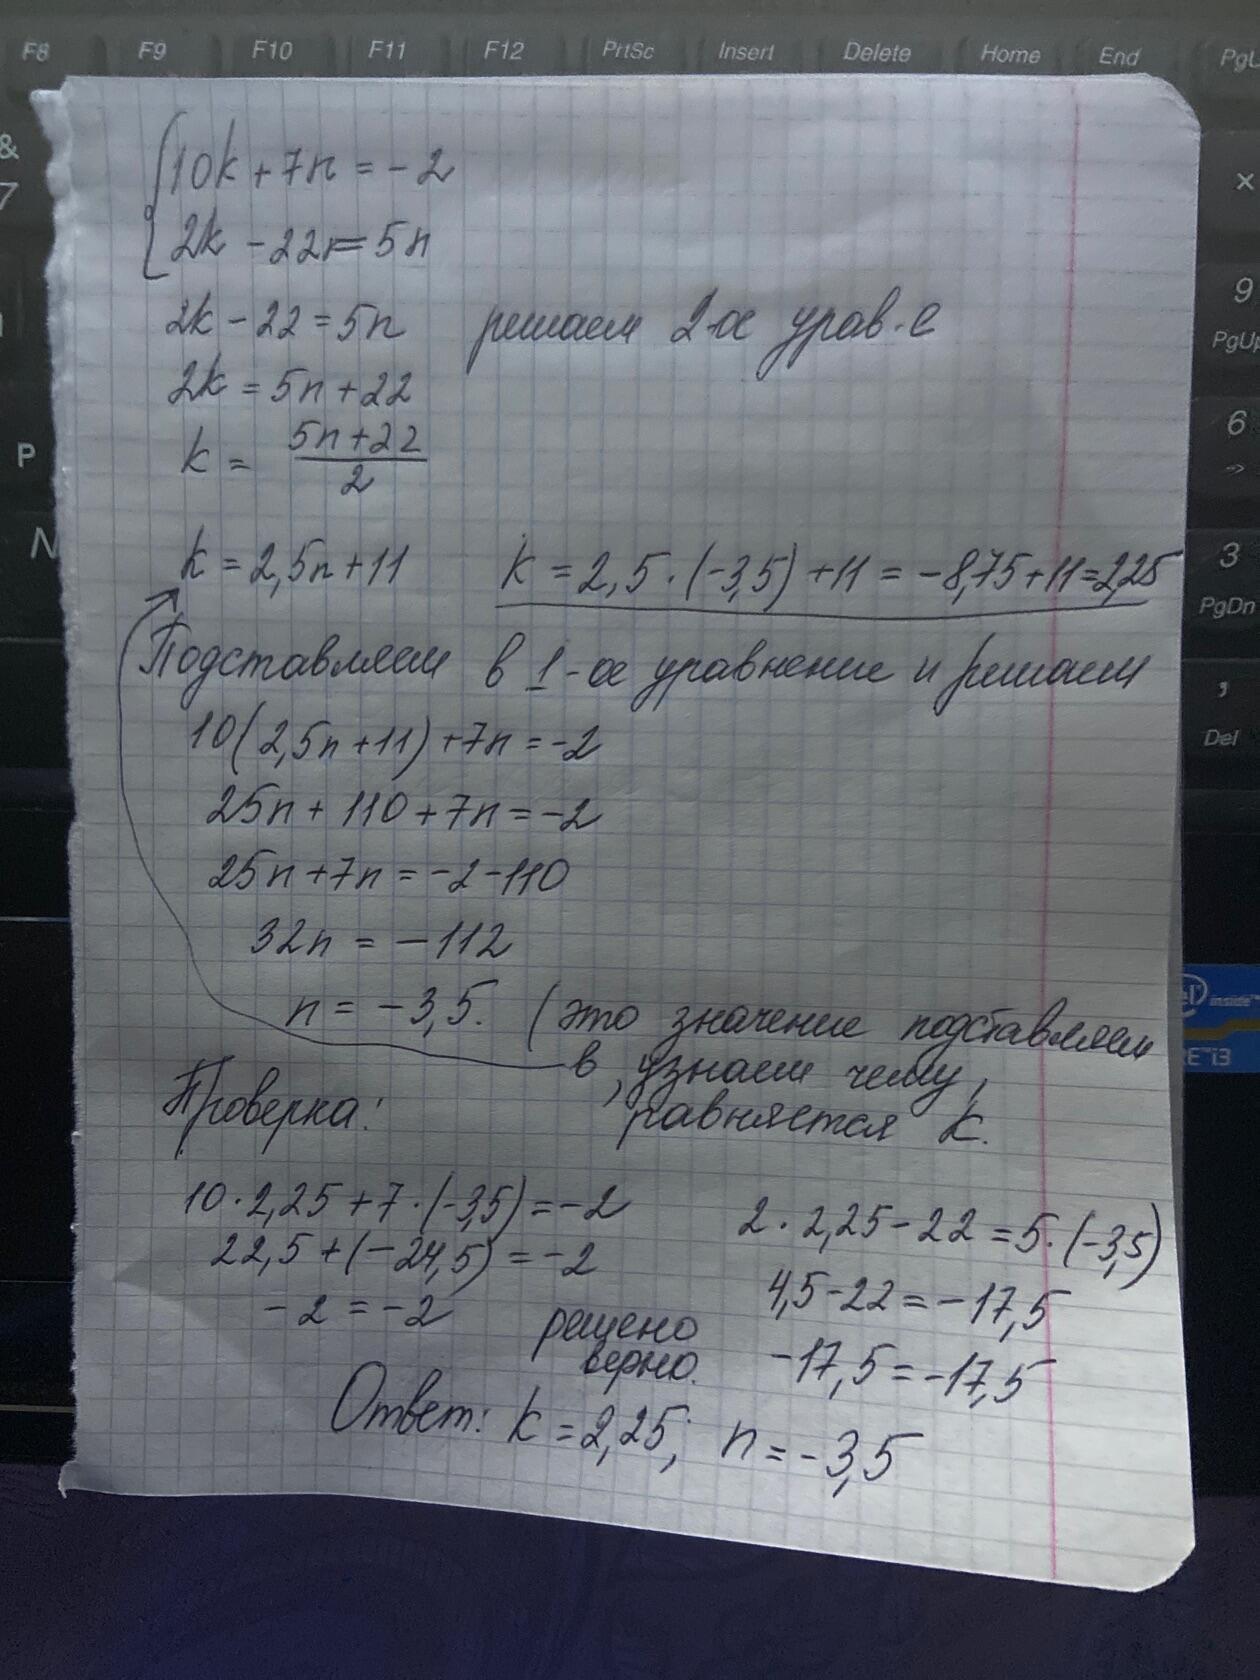 F8 F9 F10 F11 F12 PrtSc Insert Delete Home End
&
7
×
9
PgUp
6
P
N
3
PgDn
,
Del
inside™
10k + 7n = -2
2k - 22 = 5n
2k - 22 = 5n решаем 2-ое урав-е
2k = 5n + 22
k = \frac{5n + 22}{2}
k = 2,5n + 11 k = 2,5 · (-3,5) + 11 = -8,75 + 11 = 2,25
Подставляем в 1-ое уравнение и решаем
10(2,5n + 11) + 7n = -2
25n + 110 + 7n = -2
25n + 7n = -2 - 110
32n = -112
n = -3,5. (это значение подставляем
в , узнаем чему,
равняется k.
Проверка:
10 · 2,25 + 7 · (-3,5) = -2
22,5 + (-24,5) = -2
-2 = -2
2 · 2,25 - 22 = 5 · (-3,5)
4,5 - 22 = -17,5
-17,5 = -17,5
решено
верно.
Ответ: k = 2,25; n = -3,5